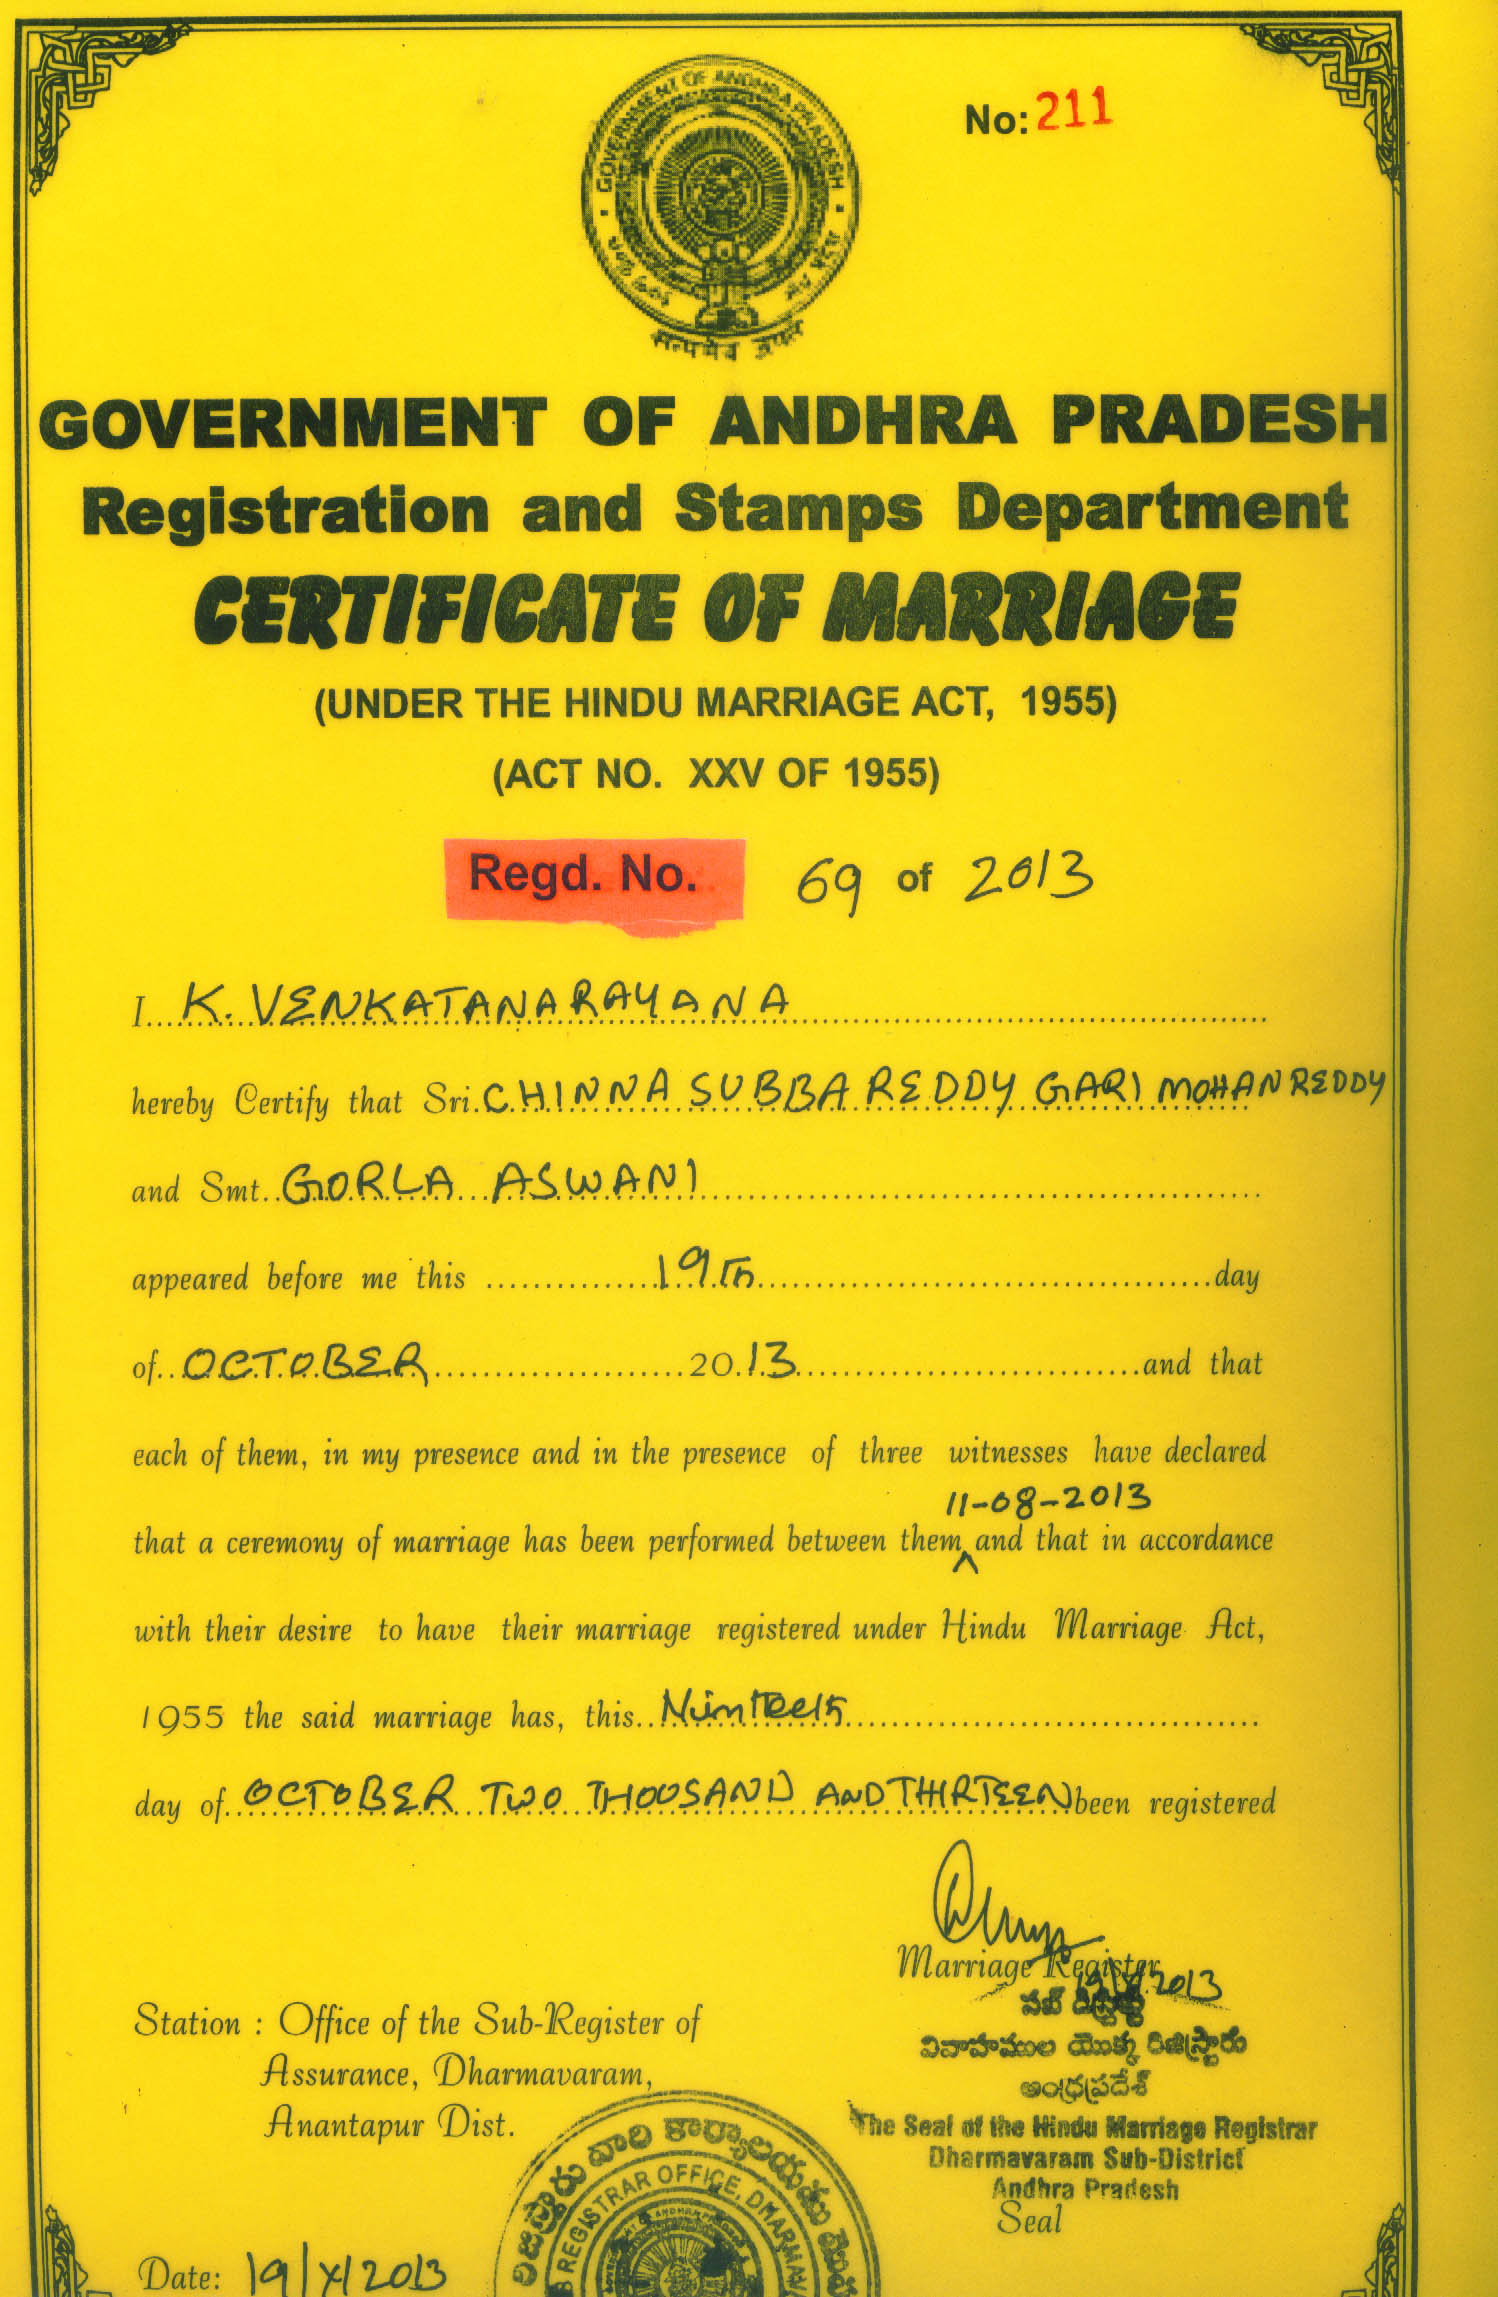 GOVERNMENT OF ANDHRA PRADESH
No: 211
सत्यमेव जयते
GOVERNMENT OF ANDHRA PRADESH
Registration and Stamps Department
CERTIFICATE OF MARRIAGE
(UNDER THE HINDU MARRIAGE ACT, 1955)
(ACT NO. XXV OF 1955)
Regd. No. 69 of 2013
I K. VENKATANARAYANA
hereby Certify that Sri. CHINNA SUBBA REDDY GARI MOHAN REDDY
and Smt. GORLA ASWANI
appeared before me this 19Th day
of OCTOBER 2013 and that
each of them, in my presence and in the presence of three witnesses have declared
11-08-2013
that a ceremony of marriage has been performed between them ^ and that in accordance
with their desire to have their marriage registered under Hindu Marriage Act,
1955 the said marriage has, this
day of OCTOBER TWO THOUSAND AND THIRTEEN been registered
Marriage Register
19/X/2013
వివాహముల యొక్క రిజిస్ట్రారు
ఆంధ్రప్రదేశ్
The Seal of the Hindu Marriage Registrar
Dharmavaram Sub-District
Andhra Pradesh
Seal
Station : Office of the Sub-Register of
Assurance, Dharmavaram,
Anantapur Dist.
REGISTRAR OFFICE,
Date: 19/X/2013